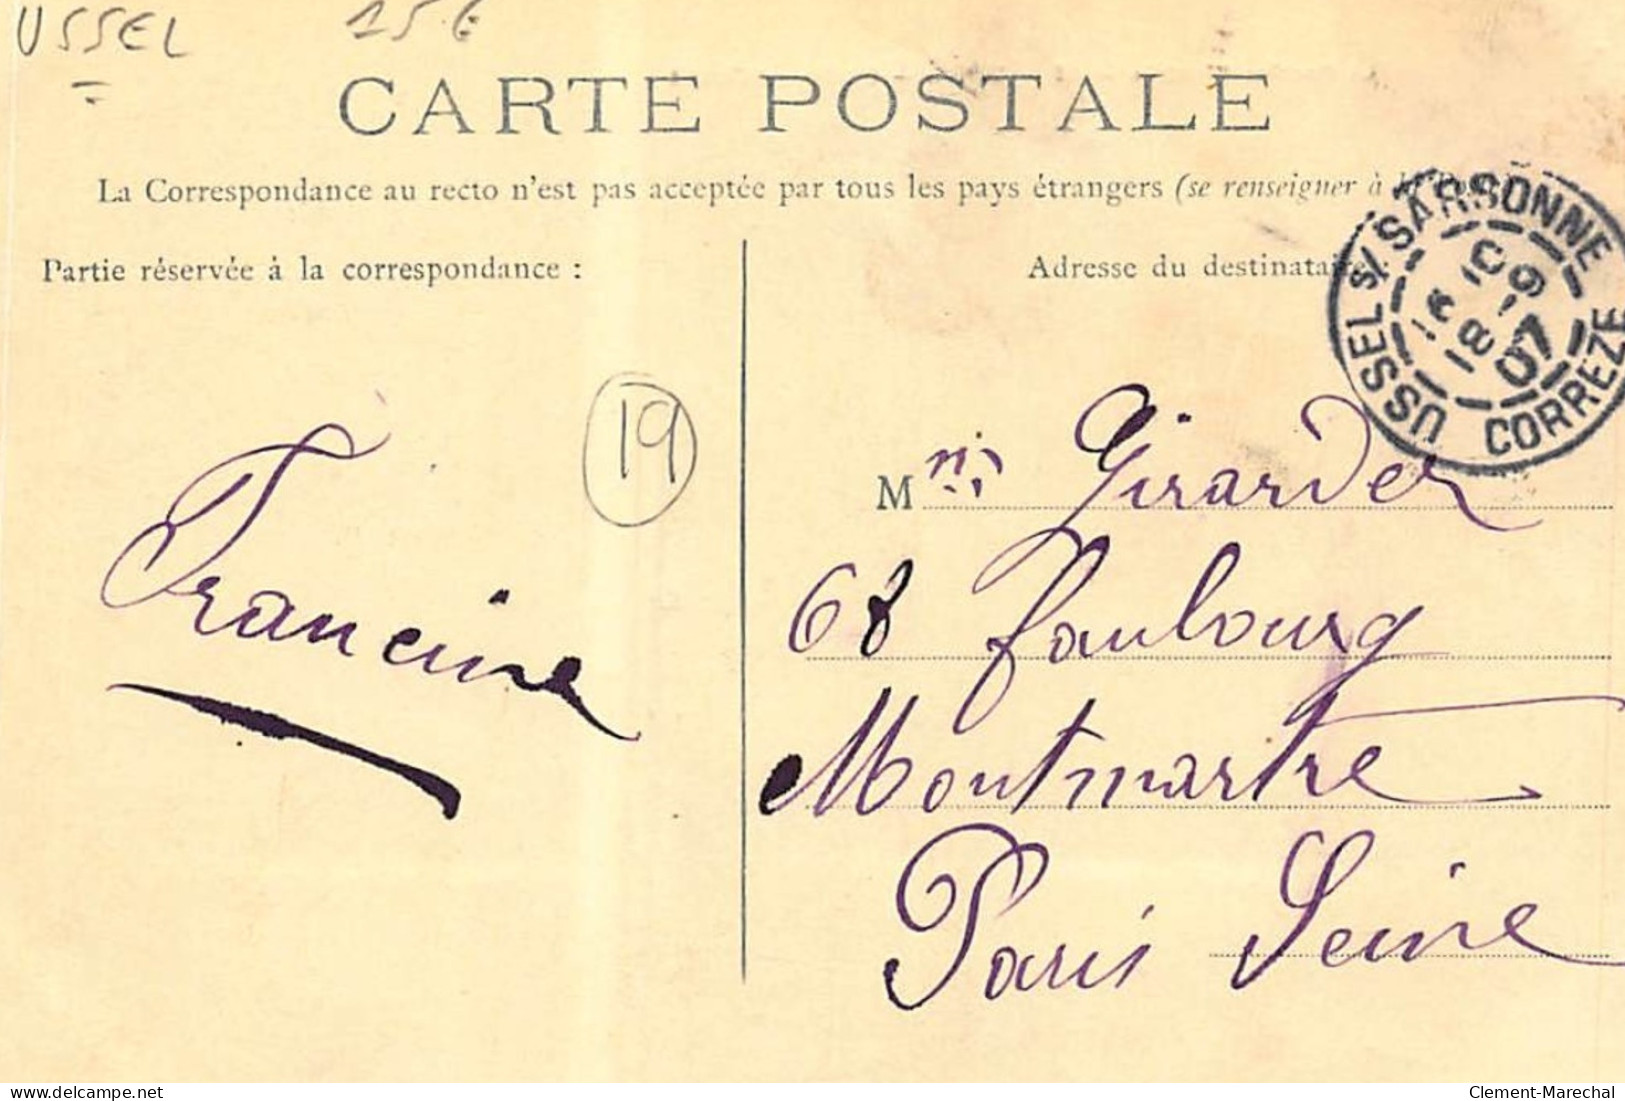 USSEL 15€
CARTE POSTALE
La Correspondance au recto n'est pas acceptée par tous les pays étrangers (se renseigner à la Poste)
Partie réservée à la correspondance :
Adresse du destinataire :
USSEL S/ SARSONNE
CORREZE
19
M Girardet
68 faubourg
Montmartre
Paris Seine
Francine
www.delcampe.net
Clement-Marechal